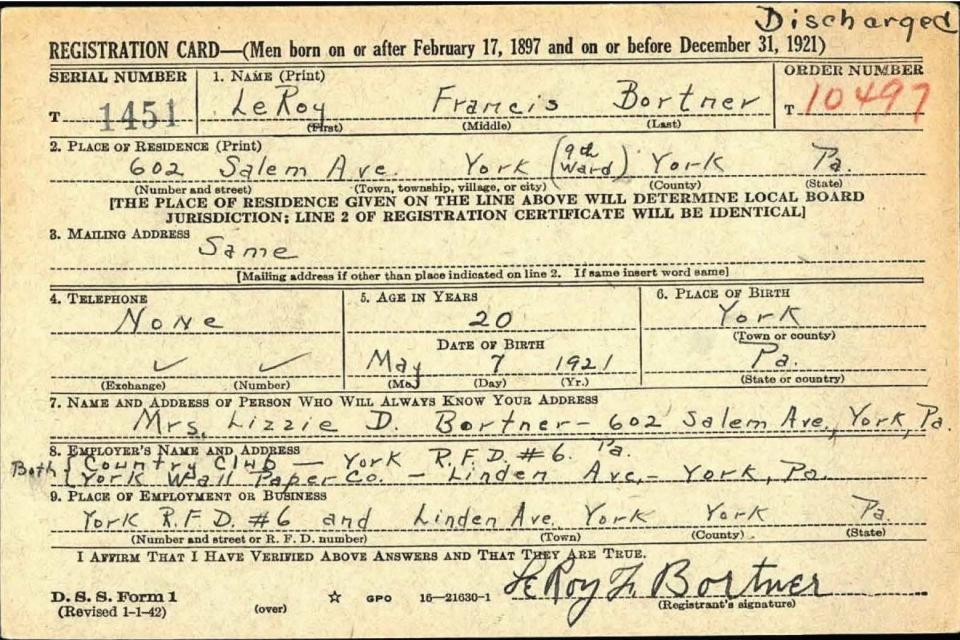 Discharged
REGISTRATION CARD—(Men born on or after February 17, 1897 and on or before December 31, 1921)
SERIAL NUMBER 1. NAME (Print) ORDER NUMBER
T 1451 LeRoy Francis Bortner T 10497
(First) (Middle) (Last)
2. PLACE OF RESIDENCE (Print)
602 Salem Ave. York (9th Ward) York Pa.
(Number and street) (Town, township, village, or city) (County) (State)
[THE PLACE OF RESIDENCE GIVEN ON THE LINE ABOVE WILL DETERMINE LOCAL BOARD
JURISDICTION; LINE 2 OF REGISTRATION CERTIFICATE WILL BE IDENTICAL]
3. MAILING ADDRESS
Same
[Mailing address if other than place indicated on line 2. If same insert word same]
4. TELEPHONE 5. AGE IN YEARS 6. PLACE OF BIRTH
None 20 York
DATE OF BIRTH (Town or county)
✓ ✓ May 7 1921 Pa.
(Exchange) (Number) (Mo.) (Day) (Yr.) (State or country)
7. NAME AND ADDRESS OF PERSON WHO WILL ALWAYS KNOW YOUR ADDRESS
Mrs. Lizzie D. Bortner - 602 Salem Ave., York, Pa.
8. EMPLOYER'S NAME AND ADDRESS
Both { Country Club — York R.F.D. #6. Pa.
York Wall Paper Co. - Linden Ave. - York, Pa.
9. PLACE OF EMPLOYMENT OR BUSINESS
York R.F.D. #6 and Linden Ave. York York Pa.
(Number and street or R. F. D. number) (Town) (County) (State)
I AFFIRM THAT I HAVE VERIFIED ABOVE ANSWERS AND THAT THEY ARE TRUE.
D. S. S. Form 1 LeRoy F. Bortner
(Revised 1-1-42) (over) ☆ GPO 16—21630-1 (Registrant's signature)